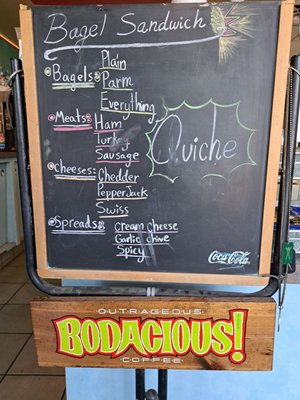 Bagel Sandwich
Bagels: Plain
Parm
Everything
Meats: Ham
Turkey
Sausage
Quiche
Cheeses: Chedder
PepperJack
Swiss
Spreads: Cream Cheese
Garlic Chive
Spicy
Coca-Cola
OUTRAGEOUS
BODACIOUS!
COFFEE